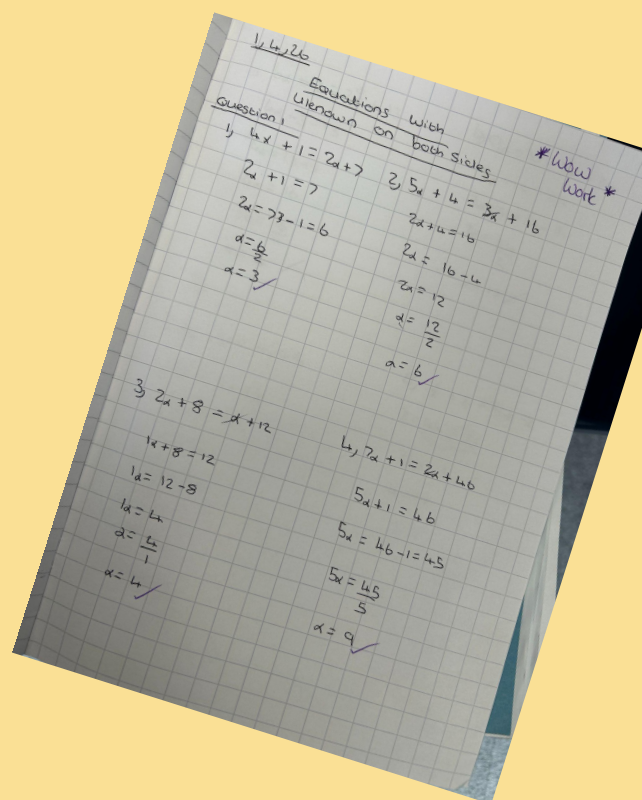 1,4,26
Equations with
Unknown on both sides
*Wow
Work*
Question 1
1, 4x + 1 = 2x+7
2x + 1 = 7
2x = 7 - 1 = 6
x = 6/2
x = 3 ✓
2, 5x + 4 = 3x + 16
2x + 4 = 16
2x = 16 - 4
2x = 12
x = 12/2
x = 6 ✓
3, 2x + 8 = x + 12
1x + 8 = 12
1x = 12 - 8
1x = 4
x = 4/1
x = 4 ✓
4, 7x + 1 = 2x + 46
5x + 1 = 46
5x = 46 - 1 = 45
5x = 45/5
x = 9 ✓